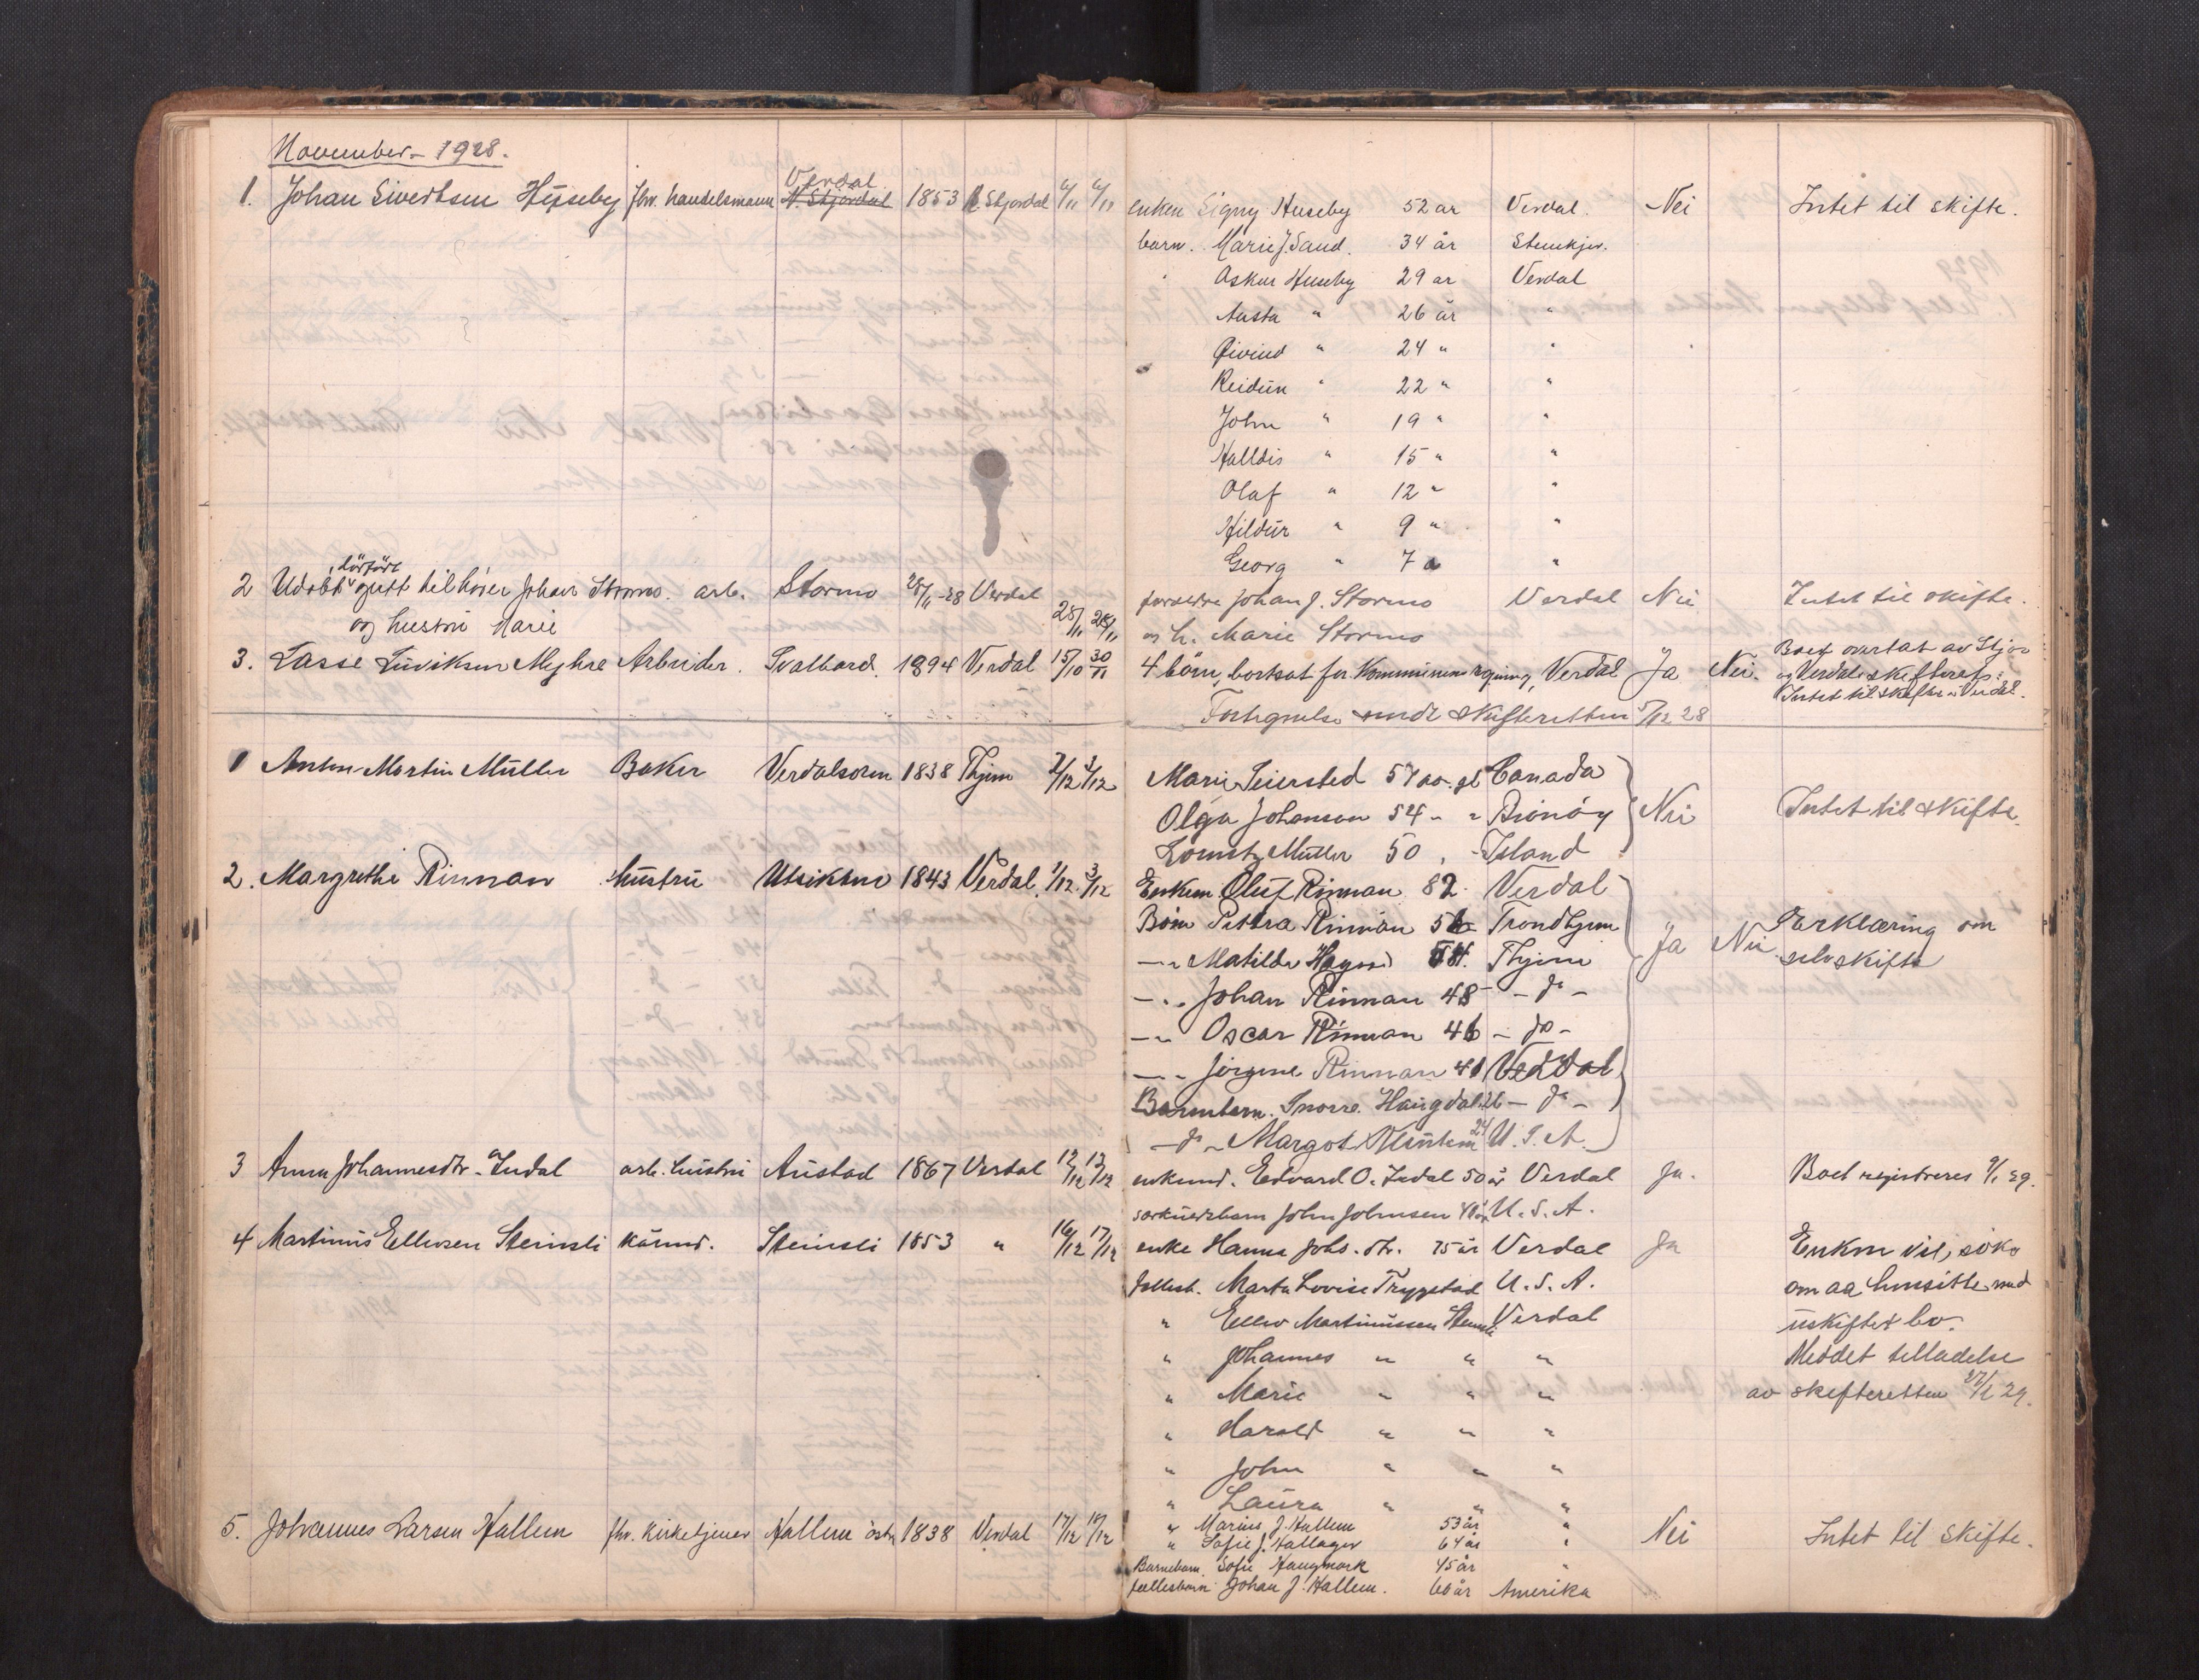 November - 1928.
1. Johan Sivertsen Hüseby fhv. handelsmann Verdal N. Stjørdal 1853 N. Stjørdal 6/11 6/11 enken Signy Huseby 52 år Verdal. Nei Intet til skifte.
barn. Marie J. Sand. 34 år Stenkjer.
" Oskar Huseby 29 år Verdal
Aasta " 26 år "
Øivind " 24 " "
Reidün " 22 " "
John " 19 " "
Halldis " 15 " "
Olaf " 12 " "
Hildür " 9 " "
Georg " 7 " "
2 Udøbt gutt tilhører Johan Stormo. arb. Stormo 28/11-28 Verdal 28/11 28/11 foreldre Johan J. Stormo Verdal Nei Intet til skifte.
og hustru Marie og h. Marie Stormo
3. Lasse Myhre Arbeider. Svalbard. 1894 Verdal 15/10 30/11 4 børn, bortsat for Kommunens regning, Verdal Ja Nei. Boet overtat av Stjør
og Verdals skifteret:
Intet til skifte i Verdal.
skifteretten 5/12 28
1 Anton Martin Müller Baker Verdalsøren 1838 Thjem 2/12 3/12 Marie Seiersted 57 aar gl Canada
Olga Johanson 54 " " Brønøy Nei Intet til skifte.
Lorentz Müller 50 " Island
2. Margrethe Rinnan hüstrü Utsikten 1843 Verdal. 1/12 3/12 Enkem Oluf Rinnan 82 Verdal
Børn Pettra Rinnan 56 Trondhjem
— " Matilde 54. Thjem Ja Nei Erklæring om
selvskifte
— " Johan Rinnan 48 — do —
— " Oscar Rinnan 46 — do —
— " Jørgine Rinnan 41 Verdal
Barnebarn. Snorre Haugdal 26 — do —
— do — Margot 24 U. S. A.
3 Anna Johannesdtr. Indal arb. hustru Aüstad 1867 Verdal 12/12 13/12 enkemd. Edvard O. Indal 50 år Verdal Ja. Boet registreres 9/1 29.
særkuldsbarn John Johnsen 40 år U. S. A.
4 Martinüs Ellevsen Steinsli kårmd. Steinsli 1853 " 16/12 17/12 enke Hanna Johs. dtr. 75 år Verdal Ja Enken vil søke
fellesb. Marta Lovise Trygstad U. S. A. om aa hensitte med
" Ellev Martinüssen Steinsli Verdal uskiftet bo.
" Johannes " " " Meddelt tilladelse
" Marie " " " av skifteretten 29.
" Harald " " "
" John " " "
" Laüra " " "
5. Johannes Larsen Hallem fhv. Kirketjener Hallem østre 1838 Verdal 17/12 18/12 " Marius J. Hallem 53 år " Nei Intet til skifte.
" Sofie J. Hallager 64 år "
Barnebarn. Sofie Haugmark 45 år "
fellesbarn Johan J. Hallem. 60 år Amerika